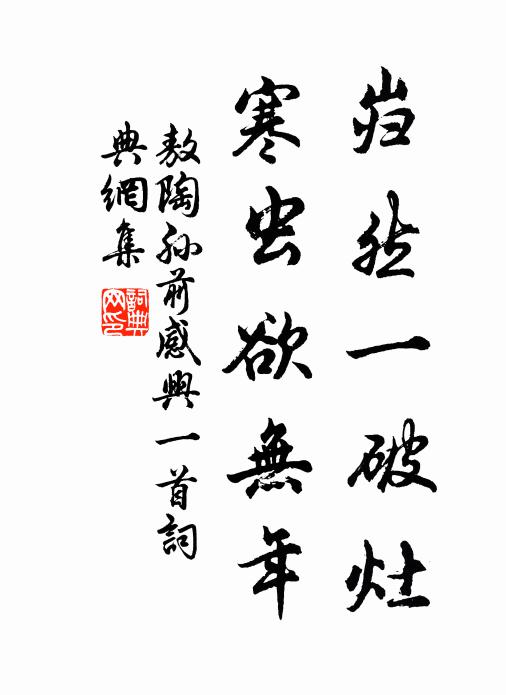 岿然一破灶
寒虫欲無年
敖陶孙前感興一首詞
典網集
詞典
网印